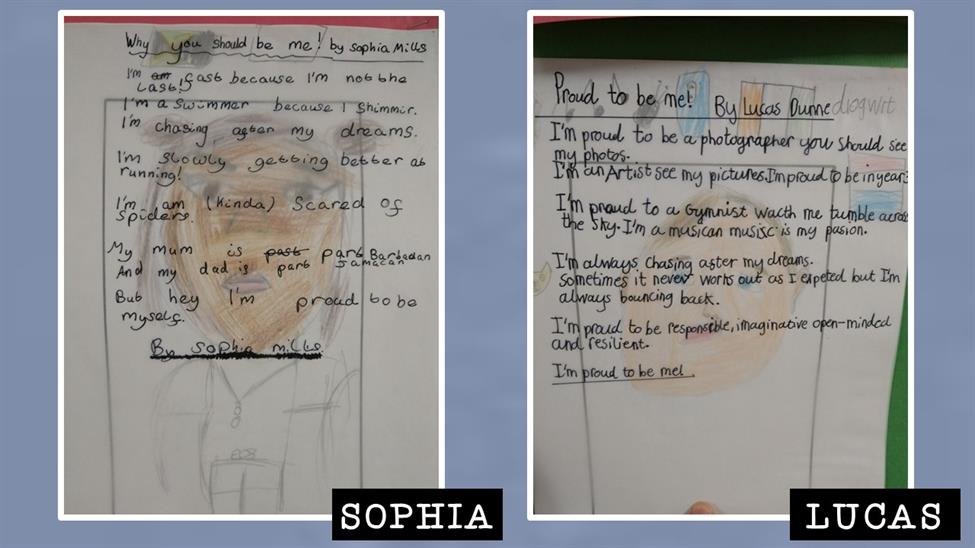 Why you should be me! by Sophia Mills
I'm am cast because I'm not the
last!
I'm a swimmer because I shimmir.
I'm chasing after my dreams.
I'm slowly getting better at
running!
I'm am (kinda) Scared of
Spiders.
My mum is past part Barbadan
And my dad is part Jamacan
But hey I'm proud to be
myself.
By sophia mills
SOPHIA
Proud to be me! By Lucas Dunne
I'm proud to be a photographer you should see
my photos.
I'm an Artist see my pictures. I'm proud to be in year
I'm proud to a Gymnist wacth me tumble across
the sky. I'm a musican musisc is my pasion.
I'm always chasing after my dreams.
Sometimes it never works out as I expeted but I'm
always bouncing back.
I'm proud to be responsible, imaginative open-minded
and resilient.
I'm proud to be me!
LUCAS